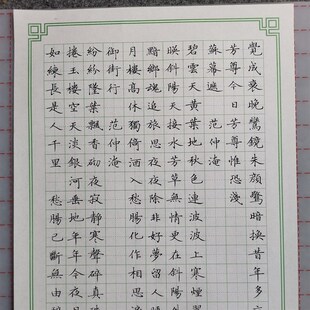 覺成衰晚鸞鏡朱顏驚暗換昔年多
芳尊今日芳尊惟恐淺
蘇幕遮　范仲淹
碧雲天黃葉地秋色連波波上寒煙翠
映斜陽天接水芳草無情更在斜陽外
黯鄉魂追旅思夜夜除非好夢留人
月樓高休獨倚酒入愁腸化作相思
御街行　范仲淹
紛紛墜葉飄香砌夜寂靜寒聲碎真
捲玉樓空天淡銀河垂地年年今夜月
如練長是人千里　愁腸已斷無由